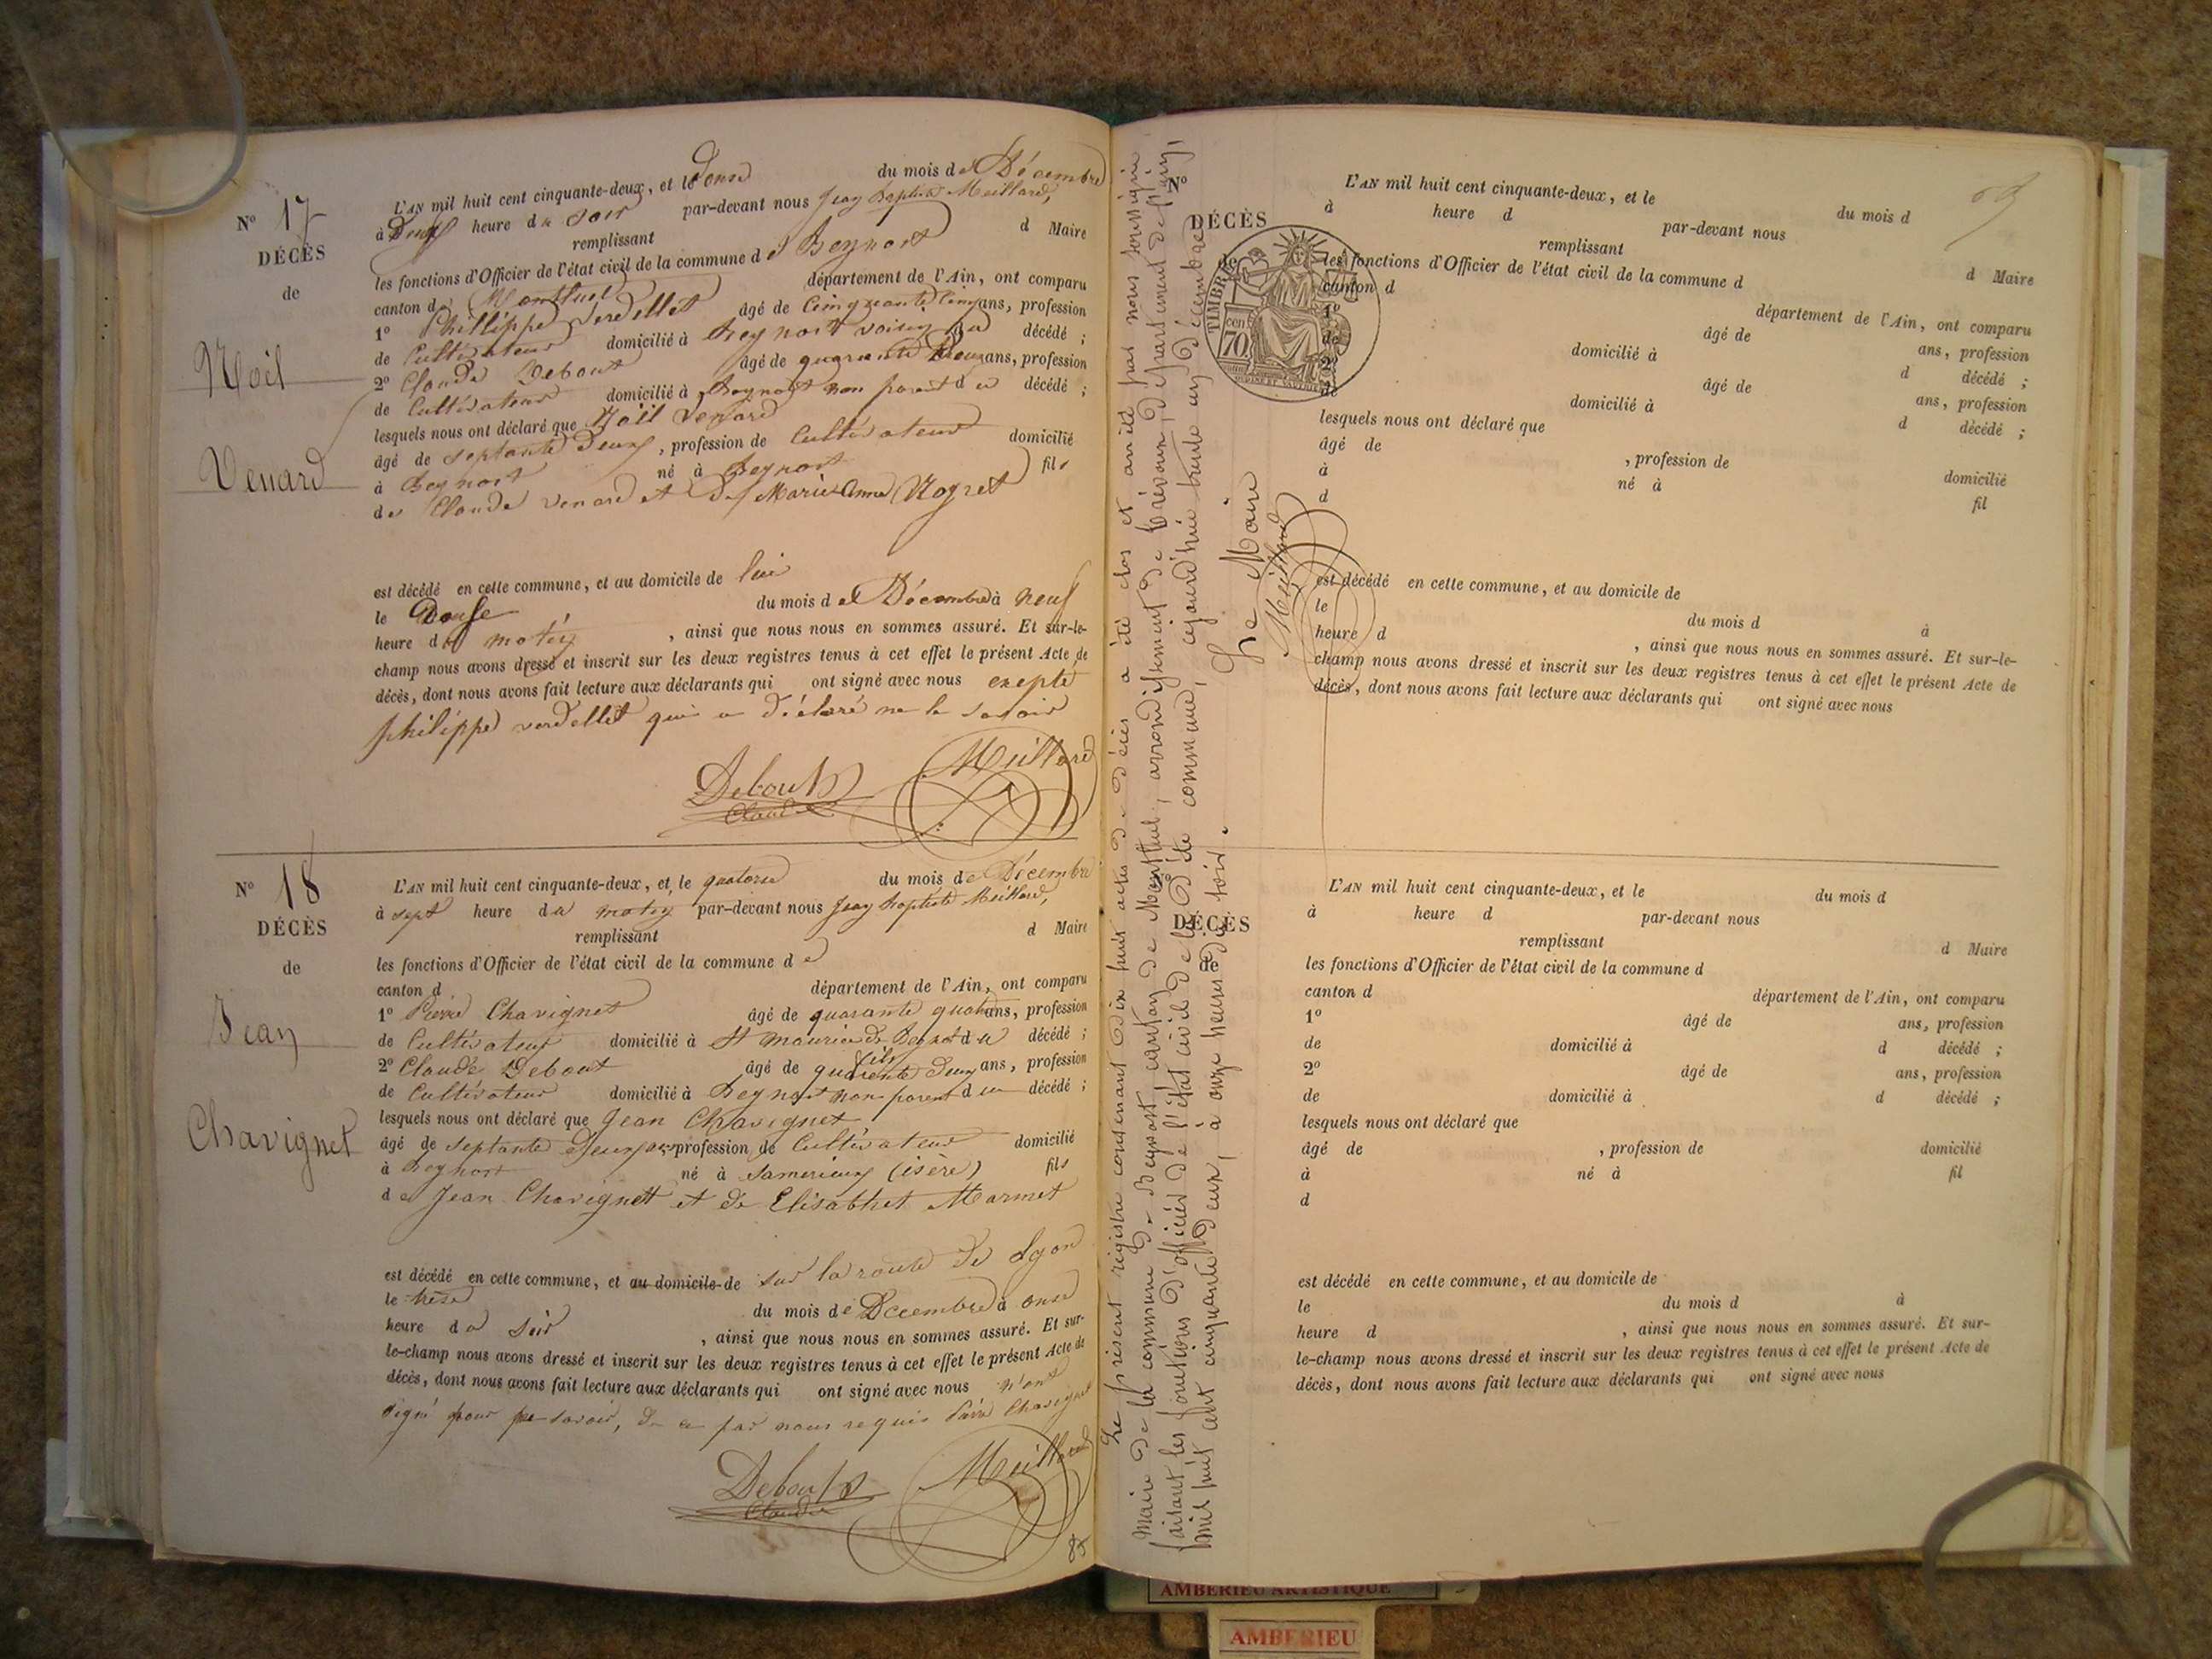 N° 17
DÉCÈS
de
Noël
Venard
L'AN mil huit cent cinquante-deux, et le Douse du mois de Décembre
à Deux heure du soir par-devant nous Jean Baptiste Meillard,
remplissant d Maire
les fonctions d'Officier de l'état civil de la commune de Beynost
canton de Montluel département de l'Ain, ont comparu
1° Philippe Verdellet âgé de Cinquante Cinq ans, profession
de Cultivateur domicilié à Beynost voisin du décédé ;
2° Claude Debout âgé de quarante Deux ans, profession
de Cultivateur domicilié à Beynost non parent du décédé ;
lesquels nous ont déclaré que Noël Venard
âgé de septante Deux, profession de Cultivateur domicilié
à Beynost né à Beynost fils
de Claude Venard et de Marie Anne Nogret
est décédé en cette commune, et au domicile de lui
le Douse du mois de Décembre à neuf
heure du matin, ainsi que nous nous en sommes assuré. Et sur-le-
champ nous avons dressé et inscrit sur les deux registres tenus à cet effet le présent Acte de
décès, dont nous avons fait lecture aux déclarants qui ont signé avec nous exepté
philippe verdellet qui a déclaré ne le savoir
Debout Meillard
Claude
N° 18
DÉCÈS
de
Jean
Chavignet
L'AN mil huit cent cinquante-deux, et le quatorse du mois de Décembre
à sept heure du matin par-devant nous Jean Baptiste Meillard,
remplissant d Maire
les fonctions d'Officier de l'état civil de la commune de
canton d département de l'Ain, ont comparu
1° Pierre Chavignet âgé de quarante quatre ans, profession
de Cultivateur domicilié à St maurice de Beynost du décédé ;
fils
2° Claude Debout âgé de quarente Deux ans, profession
de Cultivateur domicilié à Beynost non parent du décédé ;
lesquels nous ont déclaré que Jean Chavignet
âgé de septante Deux ans profession de Cultivateur domicilié
à Beynost né à Samerieux (isère) fils
de Jean Chavignett et de Elisabhet Marmet
est décédé en cette commune, et au domicile de sur la route de Lyon
le trese du mois de Décembre à onse
heure du soir, ainsi que nous nous en sommes assuré. Et sur-
le-champ nous avons dressé et inscrit sur les deux registres tenus à cet effet le présent Acte de
décès, dont nous avons fait lecture aux déclarants qui ont signé avec nous n'ont
signé pour ne savoir, de ce par nous requis Pierre Chavignet
Debout Meillard
Claude
85
Le présent registre contenant dix huit actes de Décès a été clos et arrêté par nous soussigné
Maire de la commune de Beynost, canton de Montluel, arrondissement de Trévoux, département de l'Ain,
faisant les fonctions d'officier de l'état civil de la dite commune, cejourd'hui trente un Décembre
mil huit cent cinquante deux, à onze heures du soir.
Le Maire
Meillard
69
N°
DÉCÈS
de
TIMBRE
cen
70
L'AN mil huit cent cinquante-deux, et le du mois d
à heure d par-devant nous
remplissant d Maire
les fonctions d'Officier de l'état civil de la commune d
canton d département de l'Ain, ont comparu
1° âgé de ans, profession
de domicilié à d décédé ;
2° âgé de ans, profession
de domicilié à d décédé ;
lesquels nous ont déclaré que
âgé de , profession de domicilié
à né à fil
d
est décédé en cette commune, et au domicile de
le du mois d à
heure d , ainsi que nous nous en sommes assuré. Et sur-le-
champ nous avons dressé et inscrit sur les deux registres tenus à cet effet le présent Acte de
décès, dont nous avons fait lecture aux déclarants qui ont signé avec nous
DÉCÈS
de
L'AN mil huit cent cinquante-deux, et le du mois d
à heure d par-devant nous
remplissant d Maire
les fonctions d'Officier de l'état civil de la commune d
canton d département de l'Ain, ont comparu
1° âgé de ans, profession
de domicilié à d décédé ;
2° âgé de ans, profession
de domicilié à d décédé ;
lesquels nous ont déclaré que
âgé de , profession de domicilié
à né à fil
d
est décédé en cette commune, et au domicile de
le du mois d à
heure d , ainsi que nous nous en sommes assuré. Et sur-
le-champ nous avons dressé et inscrit sur les deux registres tenus à cet effet le présent Acte de
décès, dont nous avons fait lecture aux déclarants qui ont signé avec nous
AMBERIEU ARTISTIQUE
AMBERIEU